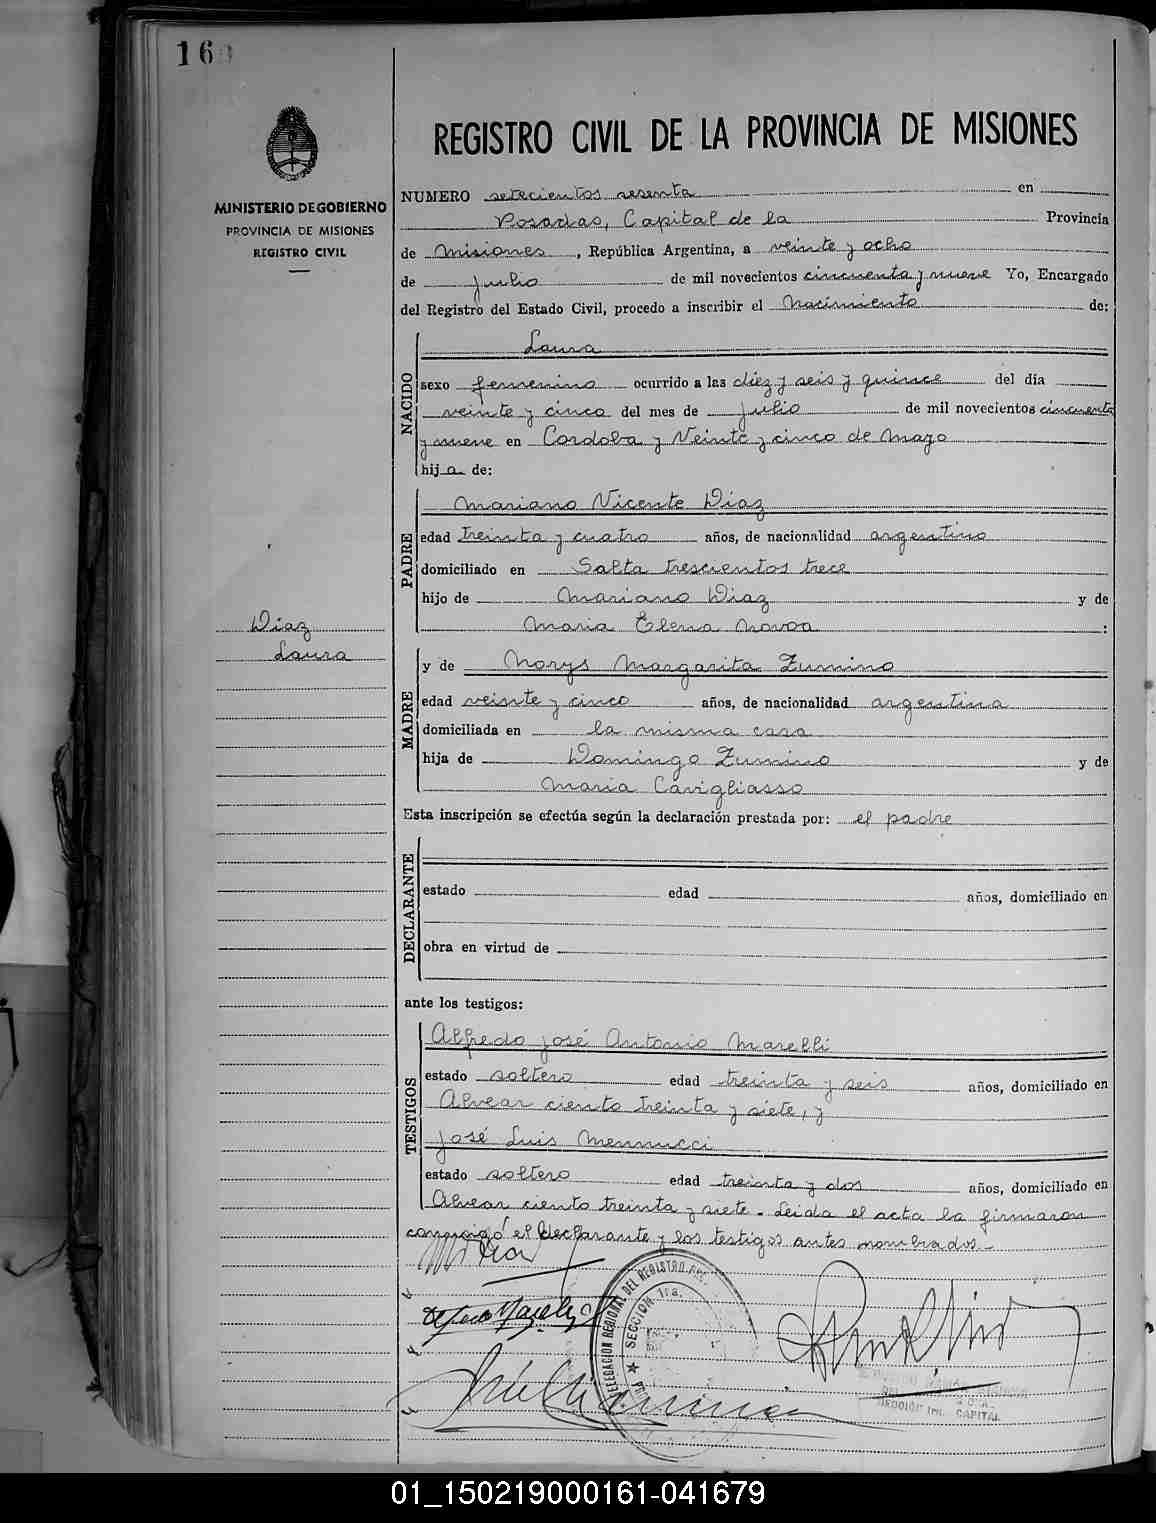 16
MINISTERIO DE GOBIERNO
PROVINCIA DE MISIONES
REGISTRO CIVIL
Diaz
Laura
REGISTRO CIVIL DE LA PROVINCIA DE MISIONES
NUMERO setecientos sesenta en
Posadas, Capital de la Provincia
de Misiones, República Argentina, a veinte y ocho
de Julio de mil novecientos cincuenta y nueve Yo, Encargado
del Registro del Estado Civil, procedo a inscribir el Nacimiento de:
NACIDO
Laura
sexo femenino ocurrido a las diez y seis y quince del día
veinte y cinco del mes de Julio de mil novecientos cincuenta
y nueve en Cordoba y Veinte y cinco de Mayo
hija de:
PADRE
Mariano Vicente Diaz
edad treinta y cuatro años, de nacionalidad argentino
domiciliado en Salta trescientos trece
hijo de Mariano Diaz y de
Maria Elena Novoa :
MADRE
y de Norys Margarita Zumino
edad veinte y cinco años, de nacionalidad argentina
domiciliada en la misma casa
hija de Domingo Zumino y de
Maria Cavigliasso
Esta inscripción se efectúa según la declaración prestada por: el padre
DECLARANTE
estado edad años, domiciliado en
obra en virtud de
ante los testigos:
TESTIGOS
Alfredo José Antonio Marelli
estado soltero edad treinta y seis años, domiciliado en
Alvear ciento treinta y siete, y
José Luis Mennucci
estado soltero edad treinta y dos años, domiciliado en
Alvear ciento treinta y siete. Leida el acta la firmaron
conmigo el declarante y los testigos antes nombrados.-
DELEGACION REGIONAL DEL REGISTRO
SECCION 1ra.
SECCION 1ra. CAPITAL
01_150219000161-041679